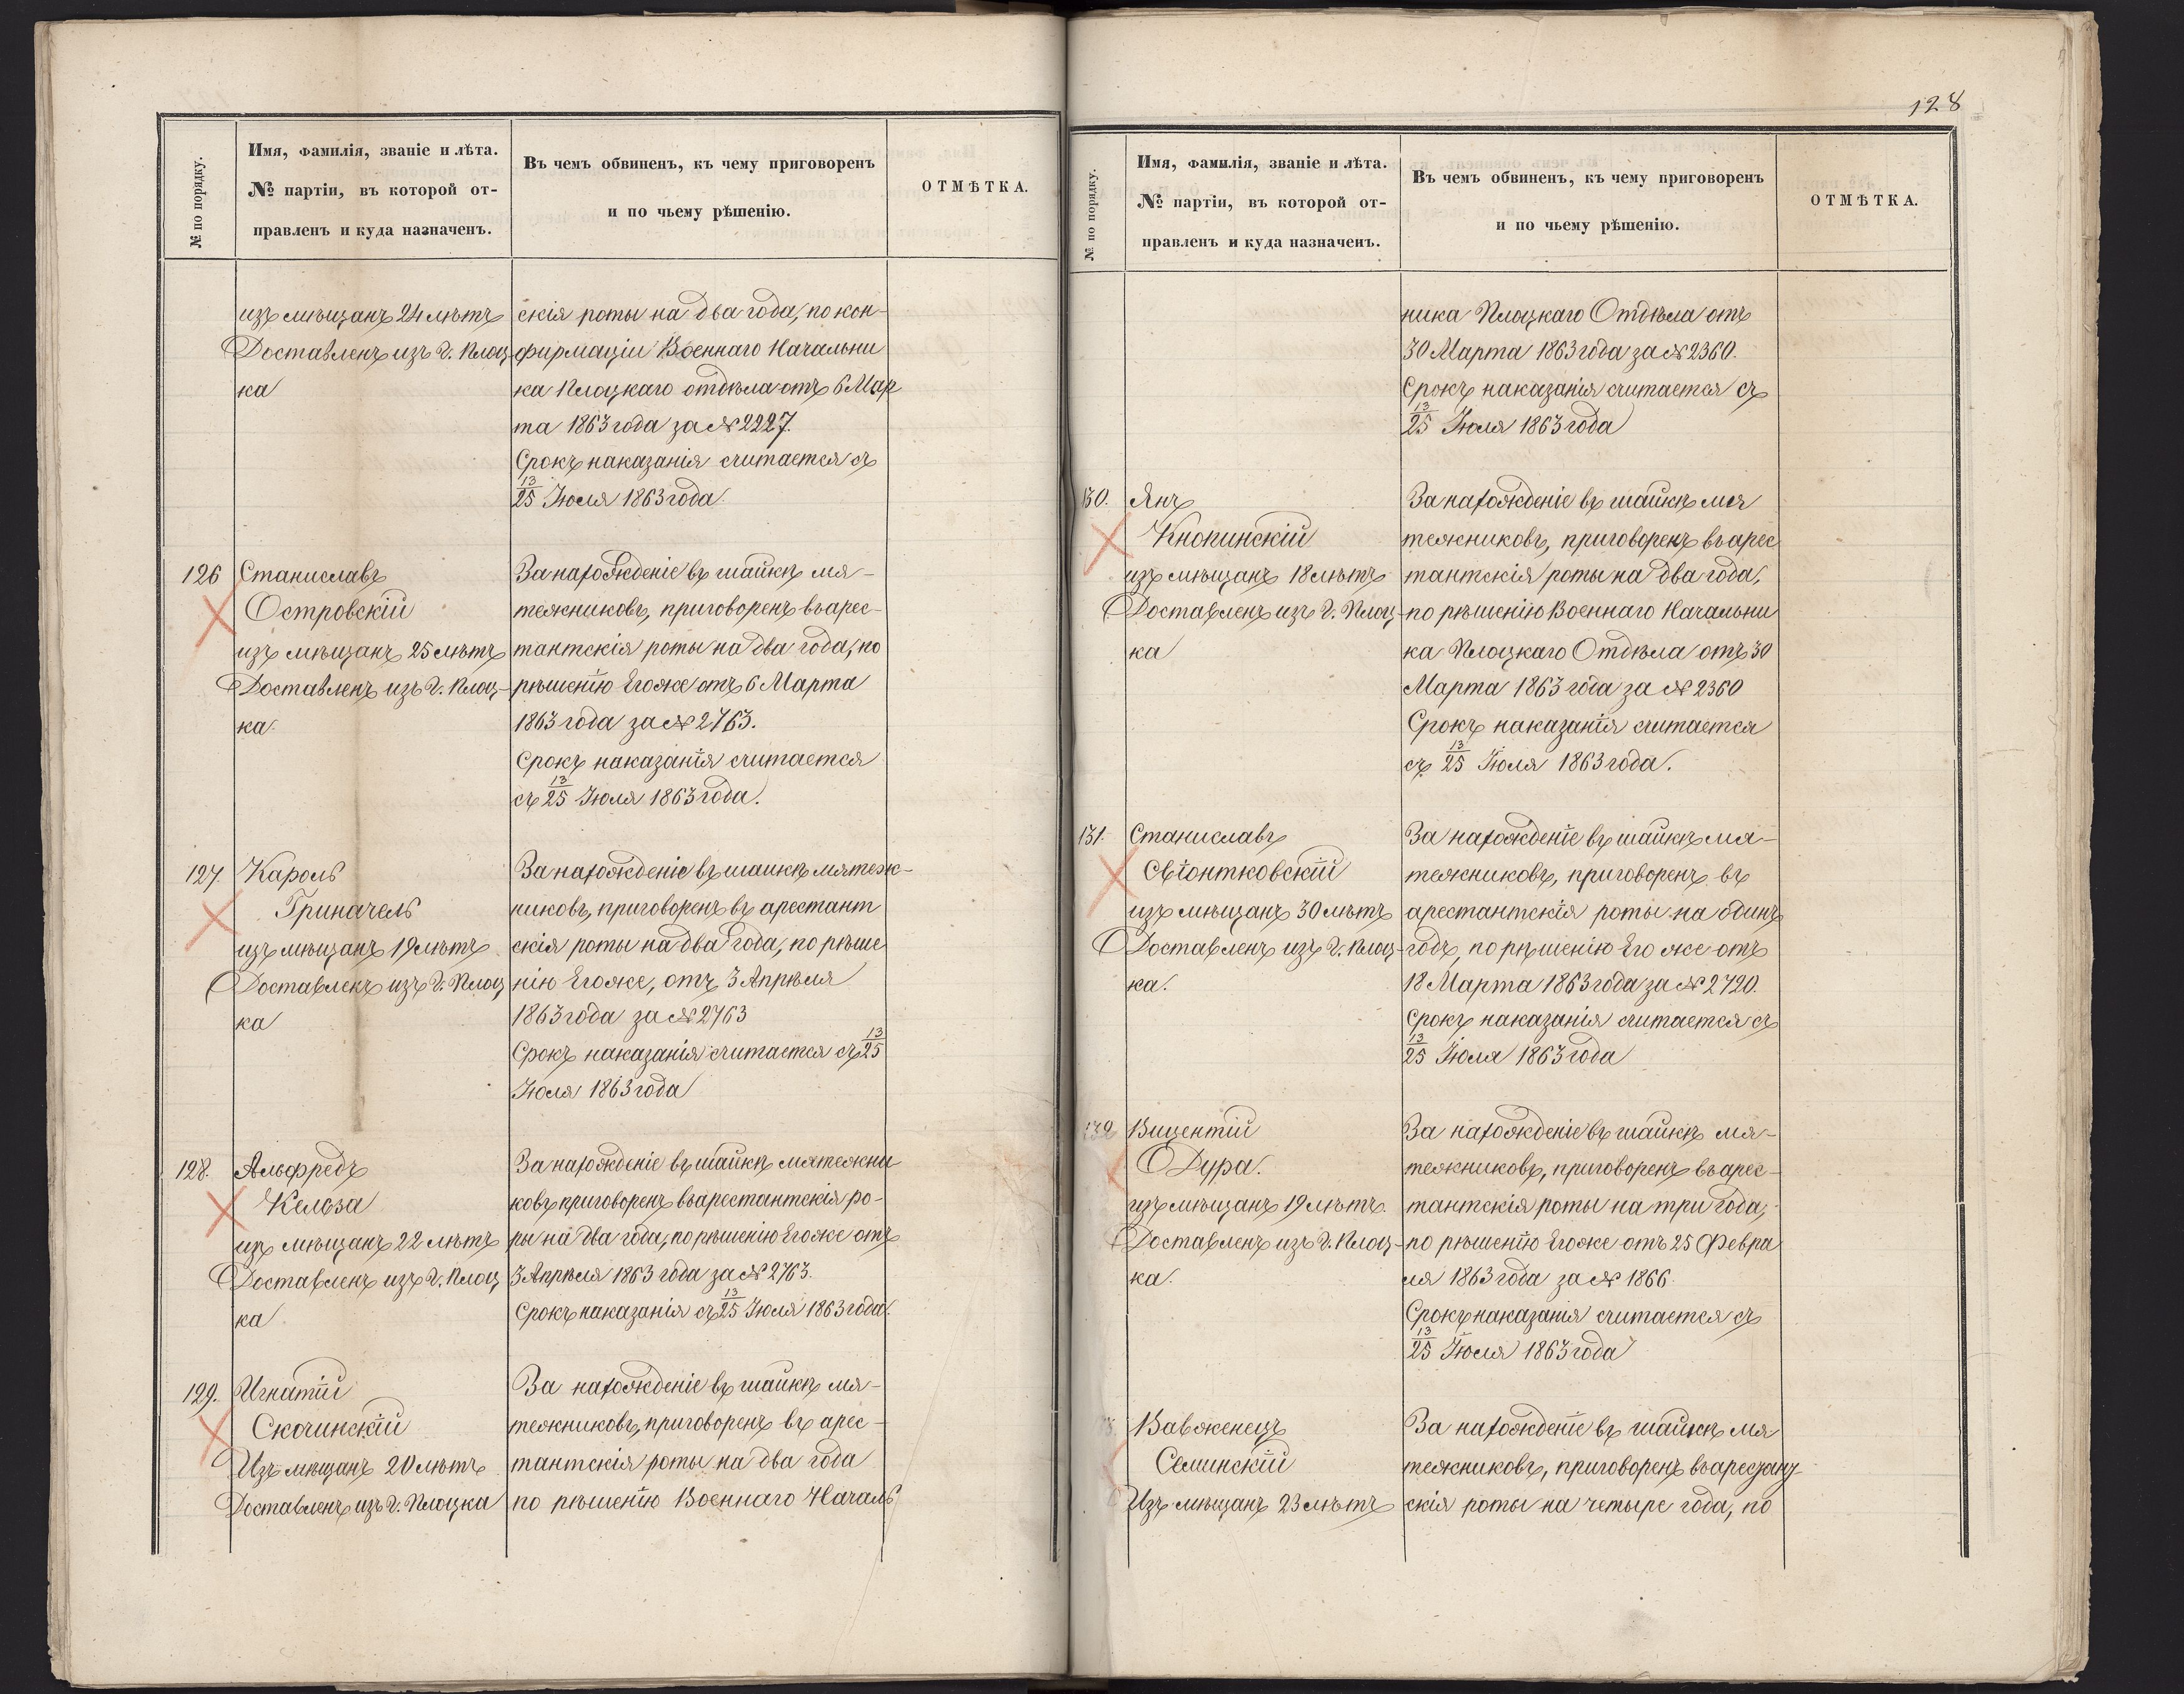 № по порядку.
Имя, фамилія, званіе и лѣта.
№ партіи, въ которой от-
правленъ и куда назначенъ.
Въ чемъ обвиненъ, къ чему приговоренъ
и по чьему рѣшенію.
ОТМѢТКА.
изъ мѣщанъ 24 лѣтъ
Доставленъ изъ г. Плоц
ка
скія роты на два года, по кон-
фирмаціи Военнаго Начальни
ка Плоцкаго отдѣла отъ 6 Мар
та 1863 года за № 2227.
Срокъ наказанія считается съ
13/25 Іюля 1863 года.
126
Станиславъ
Островскій
изъ мѣщанъ 25 лѣтъ
Доставленъ изъ г. Плоц-
ка.
За нахожденіе въ шайкѣ мя-
тежниковъ, приговоренъ въ арес-
тантскія роты на два года, по
рѣшенію Его же отъ 6 Марта
1863 года за № 2763.
Срокъ наказанія считается
съ 13/25 Іюля 1863 года.
127.
Кароль
Гриначель
изъ мѣщанъ 19 лѣтъ
Доставленъ изъ г. Плоц
ка
За нахожденіе въ шайкѣ мятеж-
никовъ, приговоренъ въ арестант
скія роты на два года, по рѣше
нію Его же, отъ 3 Апрѣля
1863 года за № 2763
Срокъ наказанія считается съ 13/25
Іюля 1863 года
128.
Альфредъ
Кельза
изъ мѣщанъ 22 лѣтъ
Доставленъ изъ г. Плоц
ка
За нахожденіе въ шайкѣ мятежни
ковъ приговоренъ въ арестантскія ро-
ты на два года, по рѣшенію Его же отъ
3 Апрѣля 1863 года за № 2763.
Срокъ наказанія съ 13/25 Іюля 1863 года.
129.
Игнатій
Скочинскій
Изъ мѣщанъ 20 лѣтъ
Доставленъ изъ г. Плоцка
За нахожденіе въ шайкѣ мя-
тежниковъ, приговоренъ въ арес-
тантскія роты на два года
по рѣшенію Военнаго Началь
128
№ по порядку.
Имя, фамилія, званіе и лѣта.
№ партіи, въ которой от-
правленъ и куда назначенъ.
Въ чемъ обвиненъ, къ чему приговоренъ
и по чьему рѣшенію.
ОТМѢТКА.
ника Плоцкаго Отдѣла отъ
30 Марта 1863 года за № 2360.
Срокъ наказанія считается съ
13/25 Іюля 1863 года
130.
Янъ
Кнопинскій
изъ мѣщанъ 18 лѣтъ
Доставленъ изъ г. Плоц-
ка
За нахожденіе въ шайкѣ мя
тежниковъ, приговоренъ въ арес
тантскія роты на два года,
по рѣшенію Военнаго Начальни
ка Плоцкаго Отдѣла отъ 30
Марта 1863 года за № 2360
Срокъ наказанія считается
съ 13/25 Іюля 1863 года.
131.
Станиславъ
Свіонтковскій
изъ мѣщанъ 30 лѣтъ
Доставленъ изъ г. Плоц-
ка.
За нахожденіе въ шайкѣ мя-
тежниковъ, приговоренъ въ
арестантскія роты на одинъ
годъ, по рѣшенію Его же отъ
18 Марта 1863 года за № 2720.
Срокъ наказанія считается съ
13/25 Іюля 1863 года
132
Вицентій
Дура.
изъ мѣщанъ 19 лѣтъ.
Доставленъ изъ г. Плоц-
ка.
За нахожденіе въ шайкѣ мя-
тежниковъ, приговоренъ въ арес-
тантскія роты на три года,
по рѣшенію Его же отъ 25 Февра
ля 1863 года за № 1866.
Срокъ наказанія считается съ
13/25 Іюля 1863 года
Вавженецъ
Семинскій
Изъ мѣщанъ 23 лѣтъ
За нахожденіе въ шайкѣ мя
тежниковъ, приговоренъ въ
скія роты на четыре года, по